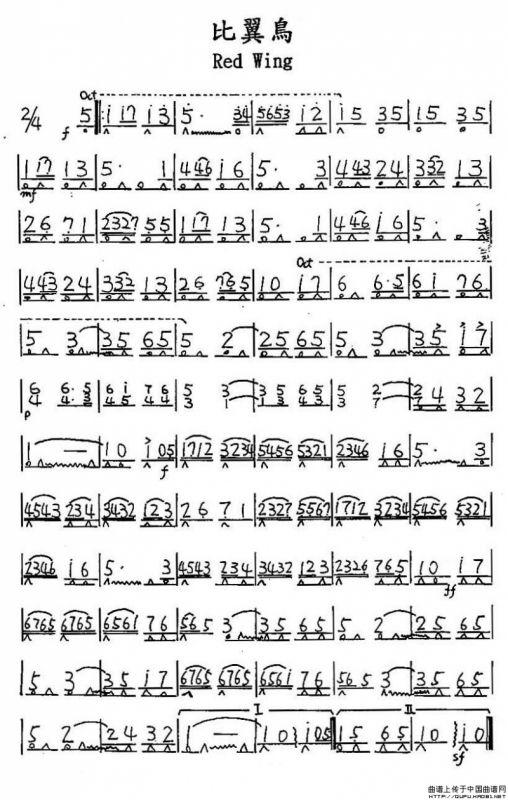 比翼鳥
Red Wing
Oct
2/4 f 5 | 1 17 1 3 | 5· 34 | 5653 1 2 | 15 35 | 15 35 |
| 117 13 | 5· 1 | 446 16 | 5· 3 | 443 24 | 332 13 |
mf
| 26 71 | 2327 55 | 117 13 | 5· 1 | 446 16 | 5· 3 |
Oct
| 443 24 | 332 13 | 26 765 | 10 17 | 6 6·5 | 61 76 |
| 5 3 | 35 65 | 5 2 | 25 65 | 5 3 | 35 17 |
p
| 24 32 |
| 1 — | 10 105 | 1712 3234 | 5456 5321 | 2346 16 | 5· 3 |
f
| 4543 234 | 3432 123 | 26 71 | 2327 5567 | 1712 3234 | 5456 5321 |
| 2346 16 | 5· 3 | 4543 234 | 3432 123 | 2326 765 | 10 17 |
ff
| 6765 6765 | 6561 76 | 565 3 | 35 65 | 5 2 | 25 65 |
| 5 3 | 35 17 | 6765 6765 | 6561 76 | 565 3 | 35 65 |
I. II.
| 5 2 | 24 32 | 1 — | 10 105 | 15 65 | 10 10 |
sf
曲谱上传于中国曲谱网